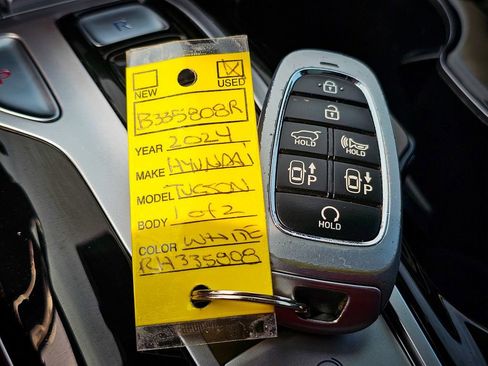 R
NEW
USED
B335808R
YEAR 2024
MAKE HYUNDAI
MODEL TUCSON
BODY 1 of 2
COLOR WHITE
RH335808
HOLD
HOLD
P
P
HOLD